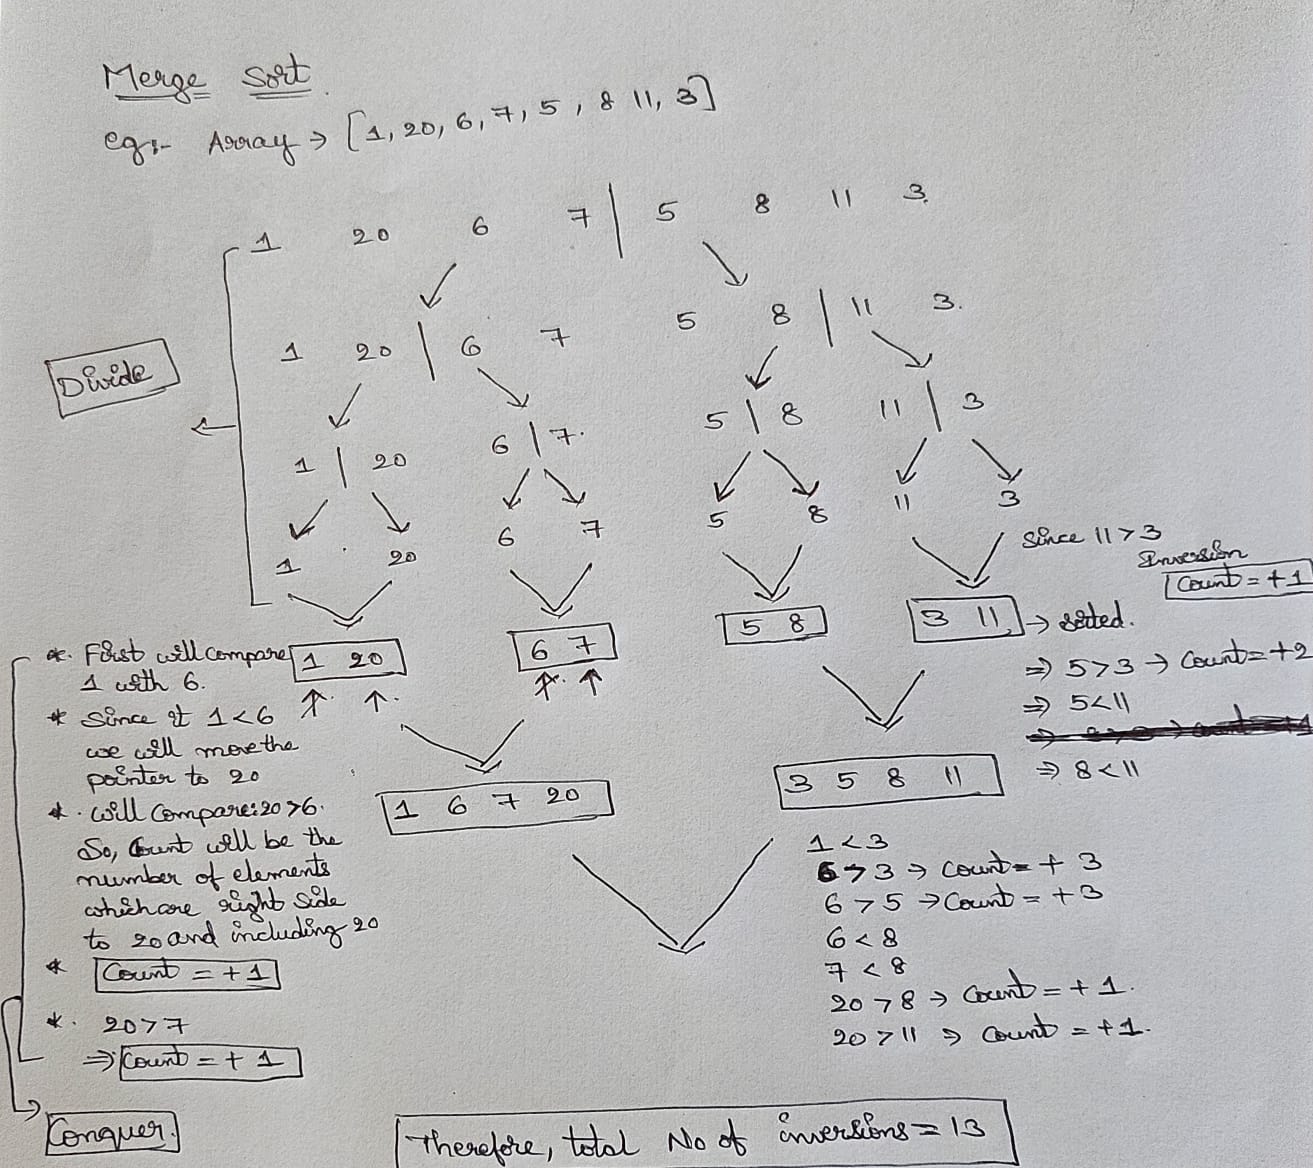 Merge Sort.
eg:- Array → [1, 20, 6, 7, 5, 8 11, 3]
1 20 6 7 | 5 8 11 3.
1 20 | 6 7 5 8 | 11 3.
Divide
1 | 20 6 | 7. 5 | 8 11 | 3
1 20 6 7 5 8 11 3
Since 11>3
Inversion
Count = +1
1 20 6 7 5 8 3 11 → sorted.
* First will compare
1 with 6.
* Since it 1<6
we will move the
pointer to 20
* will compare: 20>6.
So, Count will be the
number of elements
which are right side
to 20 and including 20
* Count = +1
* 20>7
⇒ Count = +1
Conquer.
⇒ 5>3 → Count = +2
⇒ 5<11
⇒ 8<11
1 6 7 20 3 5 8 11
1<3
6>3 → Count = +3
6>5 → Count = +3
6<8
7<8
20>8 → Count = +1.
20>11 ⇒ Count = +1.
Therefore, total No of inversions = 13